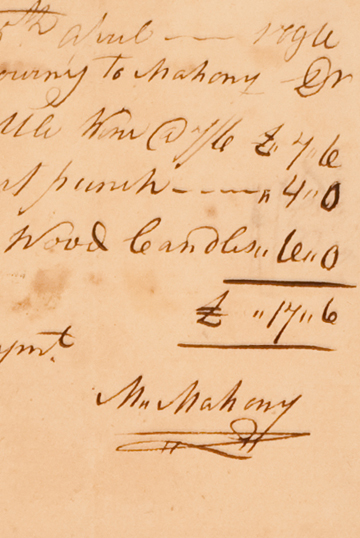 5th April —— 1796
owing to Mahony Dr
ttle Wine @ 7/6 £ 7 „ 6
punch - - - - „ 4 „ 0
Wood Candles „ 6 „ 0
£ „ 17 „ 6
M. Mahony